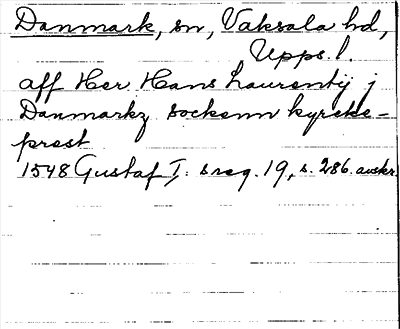 Danmark, sn, Vaksala hd,
Upps. l.
aff Her Hans Laurentij j
Danmarkz sockenn kyrcke-
prest
1548 Gustaf I: s reg. 19, s. 286. avskr.